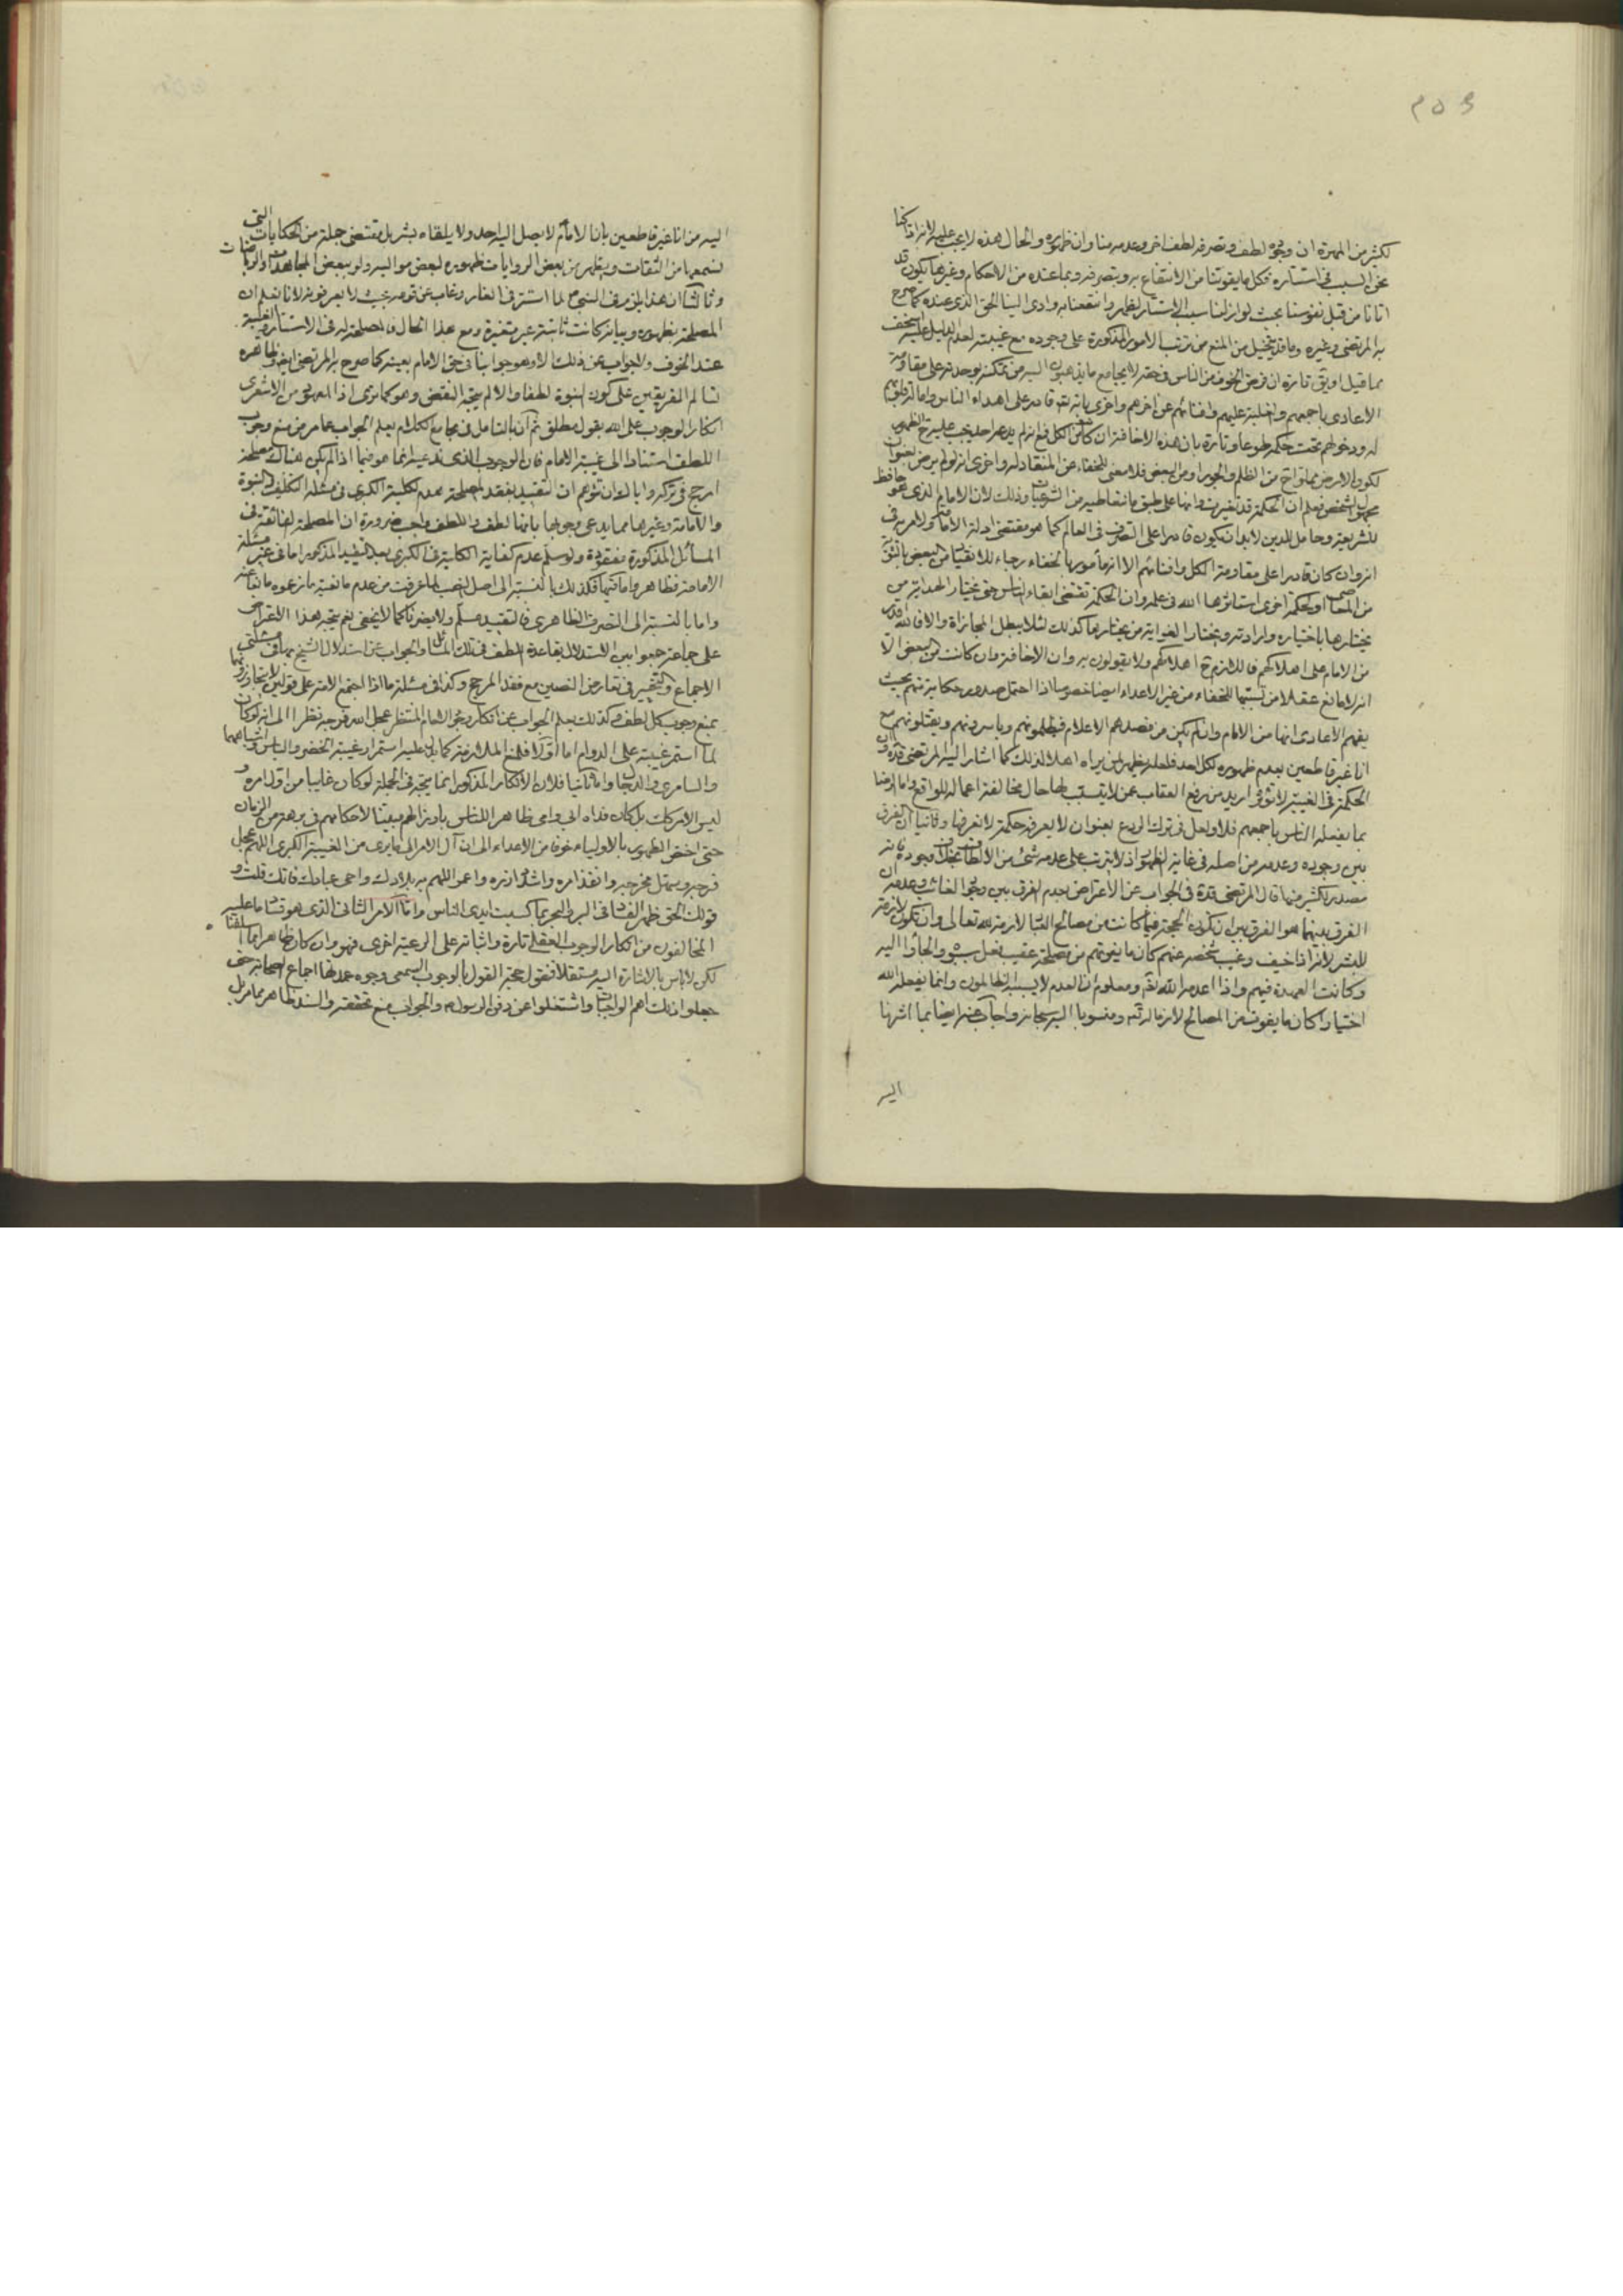 لكثير من المهرة ان وجوده لطف وتصرفه لطف اخر وعدمه منا وان ظهوره والحال هذه لا يجب عليه لانه اذا كنا
نحن السبب في استتاره فكل ما يفوتنا من الانتفاع به وبتصرفه وبما عنده من الاحكام وغيرها يكون قد
اتانا من قبل نفوسنا بحيث لو ازلنا سبب الاستتار لظهر وانتفعنا به وادى الينا الحق الذي عنده كما صرح
به المرتضى وغيره وما قد يتخيل من المنع من ترتب الامور المذكورة على وجوده مع غيبته لعدم الدليل عليه
مما قيل او يق تارة ان فرض الخوف من الناس في حقه لا يجامع ما يذهبون اليه من تمكنه بوحدته على مقاومة
الاعادي باجمعهم والغلبة عليهم وافنائهم عن اخرهم واخرى بانه قادر على اهداء الناس
له ودخولهم تحت حكمه طوعا وتارة بان هذه الاخافة ان كانت من الكل فمع انه لم يدعه احد يجب عليه ح الظهور
لكون الارض مما ح من الظلم والجور او من البعض فلا معنى للخفاء عن المنقاد له واخرى انه لو لم يرض بعنوان
مجهول الشخص نعلم ان الحكمة قد تغيرت وانها على طبق ما نتعاطيه من الشرعيات وذلك لان الامام الذي هو حافظ
للشريعة وحامل للدين لا بد ان يكون قادرا على التصرف في العالم كما هو مقتضى ادلة الامامة ولا مرية في
انه وان كان قادرا على مقاومة الكل وافنائهم الا انه مأمور بالخفاء رجاء للانقياد من البعض
من المعاصي او لحكمة اخرى استاثرها الله في علمه وان الحكمة تقتضي ابقاء الناس حتى يختار الهداية من
يختارها باختياره وارادته ويختار الغواية من يختارها كذلك لئلا يبطل المجازاة والا فالله اقدر
من الامام على اهلاكهم فاللازم ح اهلاكهم ولا يقولون به وان الاخافة وان كانت من البعض الا
انه لا مانع عقلا من تسببها للخفاء من غير الاعداء ايضا خصوصا اذا احتمل صدور حكاية منهم بحيث
يفهم الاعادي انها من الامام وان لم يكن من قصدهم الاعلام فيظلمونهم وياسرونهم ويقتلونهم مع
انا غير قاطعين بعدم ظهوره لكل احد فلعله يظهر لمن يراه اهلا لذلك كما اشار اليه المرتضى قده وان
الحكمة في الغيبة لا تؤثر في اريد من رفع العقاب عمن لا يتسبب لها حال مخالفة اعماله للواقع واما الرضا
بما يفعله الناس باجمعهم فلا ولعل في ترك الردع بعنوان لا يعرف حكمة لا نعرفها وثانيا ان الفرق
بين وجوده وعدمه من اصله في غاية الظهور اذ لا يترتب على عدمه شئ من الالطاف بخلاف وجوده فانه
مصدر لكثير منها قال المرتضى قدة في الجواب عن الاعتراض بعدم الفرق بين وجود الغائب وعدمه ان
الفرق بينهما هو الفرق بين ان تكون الحجة فيما كانت من مصالح العباد لازمة لله تعالى وان تكون لازمة
للبشر لانه اذا خيف وغيب شخصه عنهم كان ما يفوتهم من مصلحة عقيب فعل سببوه والجأوا اليه
وكانت العهدة فيهم واذا اعدمه الله تع ومعلوم ان العدم لا يسببه الظالمون وانما يفعله الله
اختيارا كان ما يفوت من المصالح لازما له تع ومنسوبا اليه سبحانه واجاب عنه ايضا بما اشرنا
اليه
اليه من انا غير قاطعين بان الامام لا يصل اليه احد ولا يلقاه بشر بل مقتضى جملة من الحكايات التي
نسمعها من الثقات ويظهر من بعض الروايات ظهوره لبعض مواليه ولو ببعض المجاهدات والرياضات
وثالثا ان هذا يلزم في النبي ص لما استتر في الغار وغاب عن قومه بحيث لا يعرفونه لانا نعلم ان
المصلحة بظهوره وبيانه كانت ثابتة غير متغيرة ومع هذا الحال فالمصلحة له في الاستتار والغيبة
عند الخوف والجواب عن ذلك لا وهو جوابنا في حق الامام بعينه كما صرح به المرتضى ايض وظاهره
تسالم الفريقين على كون النبوة لطفا والا لم يتجه النقض وهو كما ترى اذ المعهود من الاشعري
انكار الوجوب على الله بقول مطلق ثم ان بالتامل في مجامع الكلام يعلم الجواب عما مر من منع وجوب
اللطف استنادا الى غيبة الامام فان الوجوب الذي ندعيه انما هو فيما اذا لم يكن هناك مصلحة
ارجح في تركه واياك وان تتوهم ان التقييد بفقد المصلحة يهدم كلية الكبرى في مسئلة التكليف والنبوة
والامامة وغيرها مما يدعى وجوبها بانها لطف واللطف واجب ضرورة ان المصلحة الفائقة في
المسائل المذكورة مفقودة ولو سلم عدم كفاية الكلية في الكبرى بعد التقييد المذكور اما في غير مسئلة
الامامة فظاهر واما فيها فكذلك بالنسبة الى اصل النصب لما عرفت من عدم ما نعية ما زعموه مانعا عنه
واما بالنسبة الى التصرف الظاهري فالتقييد مسلم ولا يضرنا كما لا يخفى نعم يتجه هذا الاعتراض
على جماعة جمعوا بين الاستدلال بقاعدة اللطف في تلك المسائل والجواب عن استدلال الشيخ بها في مسئلتي
الاجماع والتخيير في تعارض النصين مع فقد المرجح وكذا في مسئلة ما اذا اجتمع الامة على قولين لا يتجاوزونهما
بمنع وجوب كل لطف وكذلك يعلم الجواب عن انكار وجود الامام المنتظر عجل الله فرجه نظرا الى انه لو كان
لما استمر غيبته على الدوام اما اولا فلمنع الملازمة كما يدل عليه استمرار غيبة الخضر والياس واشباههما
والسامري والدجال واما ثانيا فلان الانكار المذكور انما يتجه في الجملة لو كان غايبا من اول امره و
ليس الامر كذلك بل كان فداه ابي وامي ظاهرا للناس بارزا لهم مبينا لاحكامهم في برهة من الزمان
حتى اختص الظهور بالاولياء خوفا من الاعداء الى ان آل الامر الى ما يرى من الغيبة الكبرى اللهم عجل
فرجه وسهل مخرجه وانفذ امره واشدد ازره واعمر اللهم به بلادك واحي عبادك فانك قلت و
قولك الحق ظهر الفساد في البر والبحر بما كسبت ايدي الناس واما الامر الثاني الذي هو قسا ما عليه
المخالفون من انكار الوجوب العقلي تارة واثباته على الرعية اخرى فهو وان كان ظاهرا مما اسلفنا
لكن لا باس بالاشارة اليه مستقلا فنقول حجة القول بالوجوب السمعي وجوه عمدتها اجماع الصحابة حتى
جعلوا ذلك اهم الواجبات واشتغلوا عن دفن الرسول ص والجواب منع تحققه والسند ظاهر مما مر بل